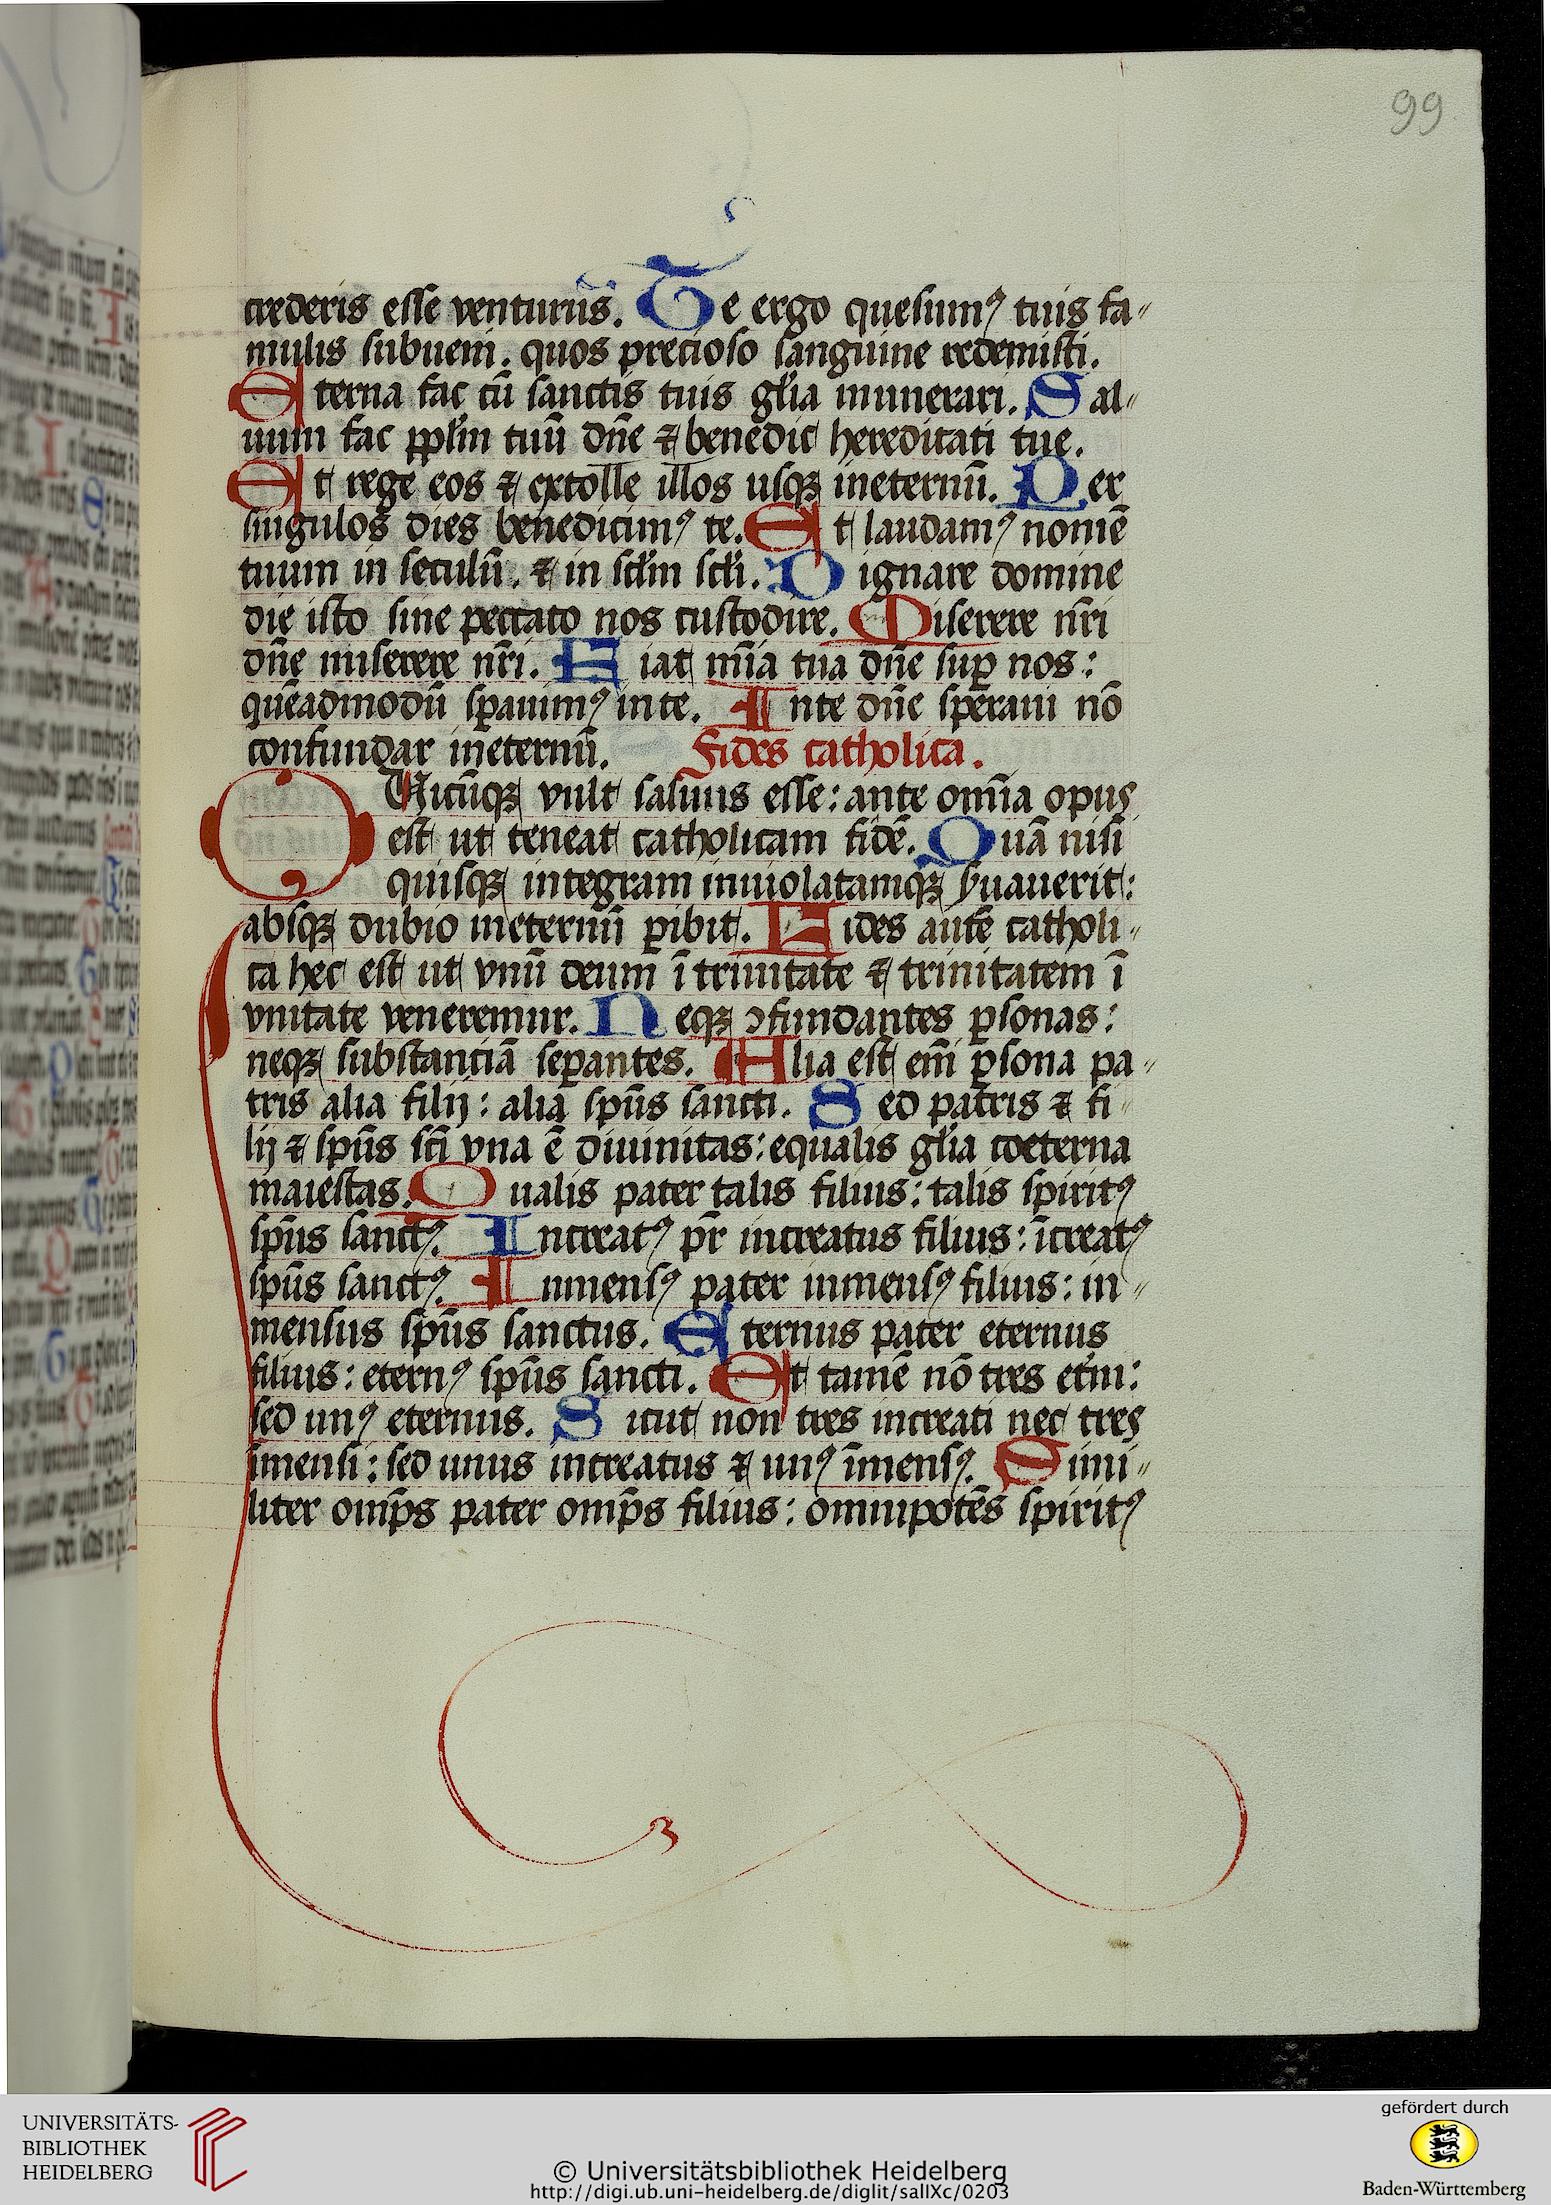 99
crederis esse venturus. Te ergo quesumꝰ tuis fa⸗
mulis subueni. quos precioso sanguine redemisti.
Eterna fac cū sanctis tuis gl̄ia munerari. Sal⸗
uum fac ppl̄m tuū dn̄e ⁊ benedic hereditati tue.
Et rege eos ⁊ extolle illos usqꝫ ineternū. Per
singulos dies benedicimꝰ te. Et laudamꝰ nomē
tuum in seculū. ⁊ in scl̄m scl̄i. Dignare domine
die isto sine peccato nos custodire. Miserere nr̄i
dn̄e miserere nr̄i. Fiat mīa tua dn̄e suꝑ nos:
quēadmodū sꝑauimꝰ in te. Inte dn̄e speraui nō
confundar ineternū. Fides catholica.
QUicūqꝫ vult saluus esse: ante om̄ia opus
est ut teneat catholicam fidē. Quā nisi
quisqꝫ integram inuiolatamqꝫ seruauerit:
absqꝫ dubio ineternū ꝑibit. Fides autē catholi⸗
ca hec est ut vnū deum ī trinitate ⁊ trinitatem ī
vnitate veneremur. Neqꝫ ꝯfundantes ꝑsonas:
neqꝫ substanciā seꝑantes. Alia est em̄ ꝑsona pa⸗
tris alia filij: alia sp̄us sancti. Sed patris ⁊ fi⸗
lij ⁊ sp̄us sc̄i vna ē diuinitas: equalis gl̄ia coeterna
maiestas. Qualis pater talis filius: talis spiritꝰ
sp̄us sanctꝰ. Increatꝰ pr̄ increatus filius: īcreatꝰ
sp̄us sanctꝰ. Inmensꝰ pater inmensꝰ filius: in⸗
mensus sp̄us sanctus. Eternus pater eternus
filius: eternꝰ sp̄us sancti. Et tamē nō tres et̄ni:
sed unꝰ eternus. Sicut non tres increati nec tres
īmensi: sed unus increatus ⁊ unꝰ īmensꝰ. Simi⸗
liter omp̄s pater omp̄s filius: omnipotēs spiritꝰ
UNIVERSITÄTS-
BIBLIOTHEK
HEIDELBERG
© Universitätsbibliothek Heidelberg
http://digi.ub.uni-heidelberg.de/diglit/salIXc/0203
gefördert durch
Baden-Württemberg